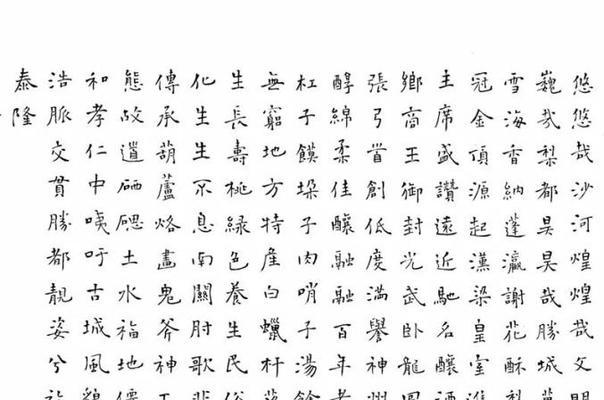 悠悠哉沙河煌煌哉文明
巍哉梨都昊昊哉勝城
雪海香納蓬瀛謝花酥梨
冠金頂源起漢梁皇室
主席盛讚遠近馳名釀酒
鄉高王御封光武卧龍
張弓首創低度滿譽神州
醇綿柔佳釀融融百年老
杠子饃垛子肉哨子湯
無窮地方特產白蠟杆
生長壽桃綠色養生民俗
化生生不息南關肘歌
傳承葫蘆烙畫鬼斧神工
態故道硒土水福地
和孝仁中咦吁古城風貌
浩脈交貫勝都靚姿兮
泰隆